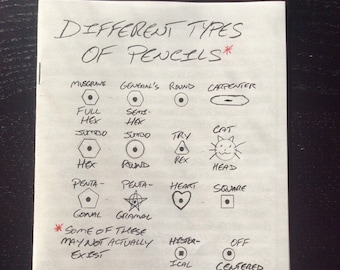 DIFFERENT TYPES
OF PENCILS*
MUSGRAVE GENERAL'S ROUND CARPENTER
FULL HEX SEMI-HEX
JUMBO JUMBO TRY CAT
HEX ROUND REX HEAD
PENTA- PENTA- HEART SQUARE
GONAL GRAMAL
* SOME OF THESE
MAY NOT ACTUALLY
EXIST
HYSTER- OFF
ICAL CENTERED